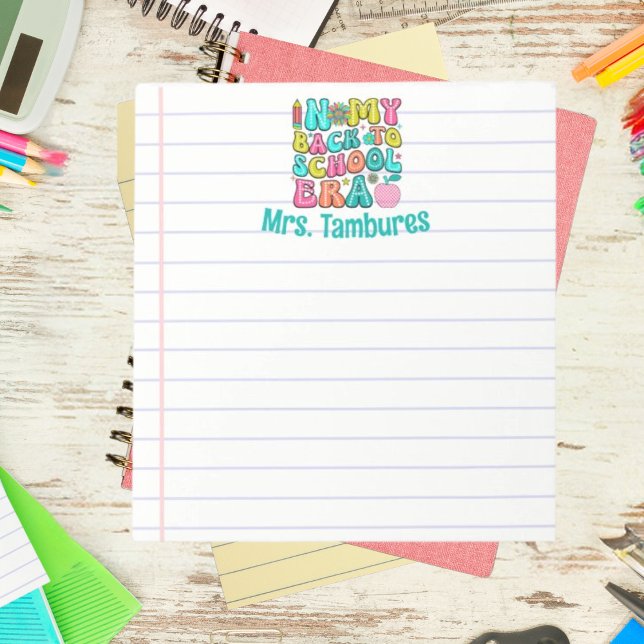 IN MY
BACK TO
SCHOOL
ERA
Mrs. Tambures